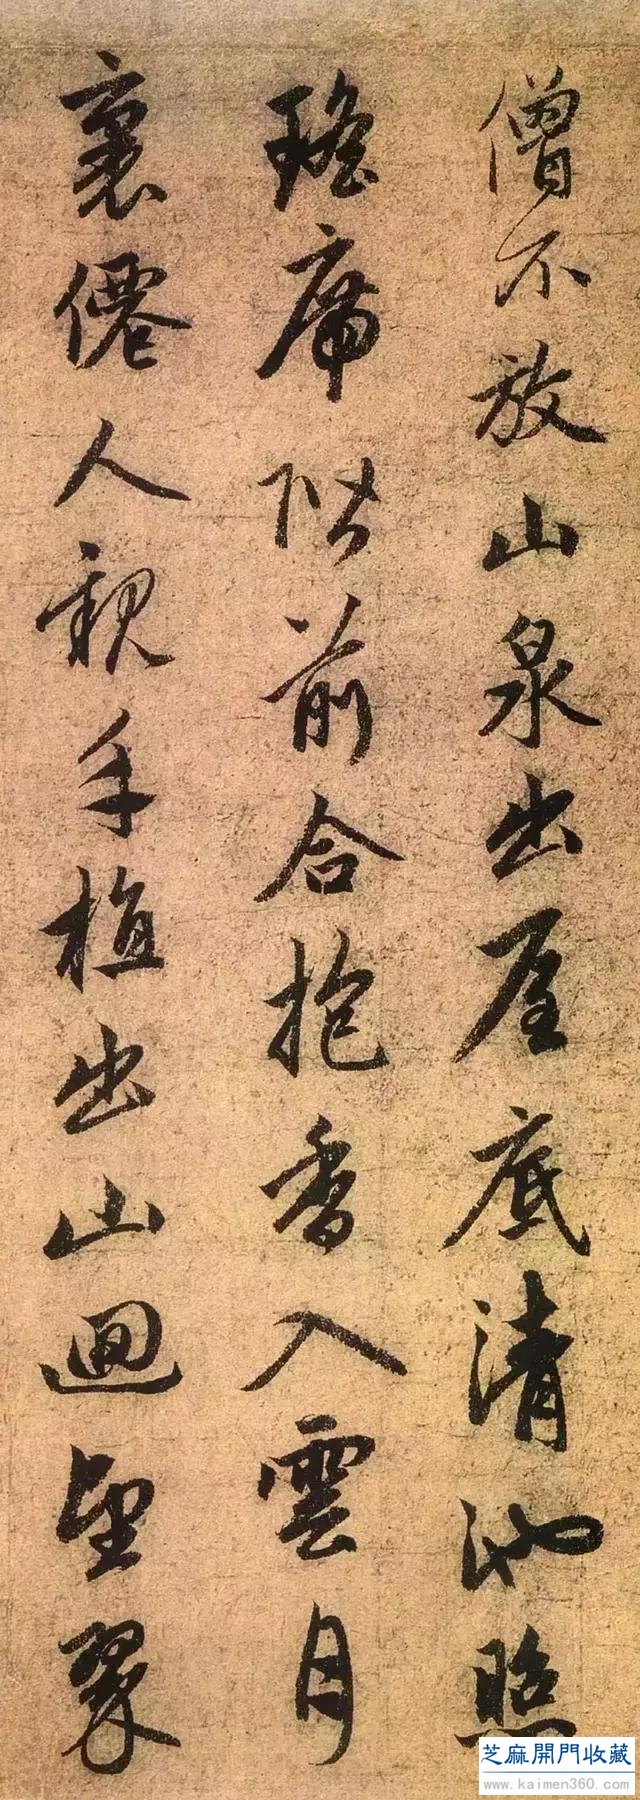 僧不放山泉出屋底清池照
瑤席階前合抱香入雲月
裏僊人親手植出山迴望翠
芝麻開門收藏
www.kaimen360.com